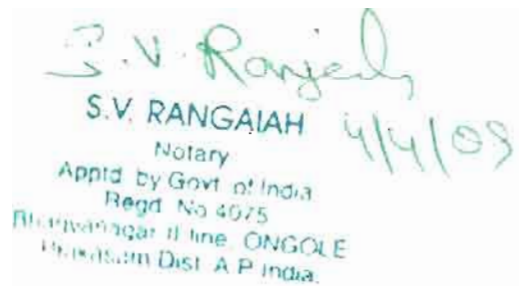 S.V. Rangaiah
S.V. RANGAIAH
4/4/09
Notary
Apptd by Govt of India
Regd No 4075
II line, ONGOLE
Prakasam Dist A P India.